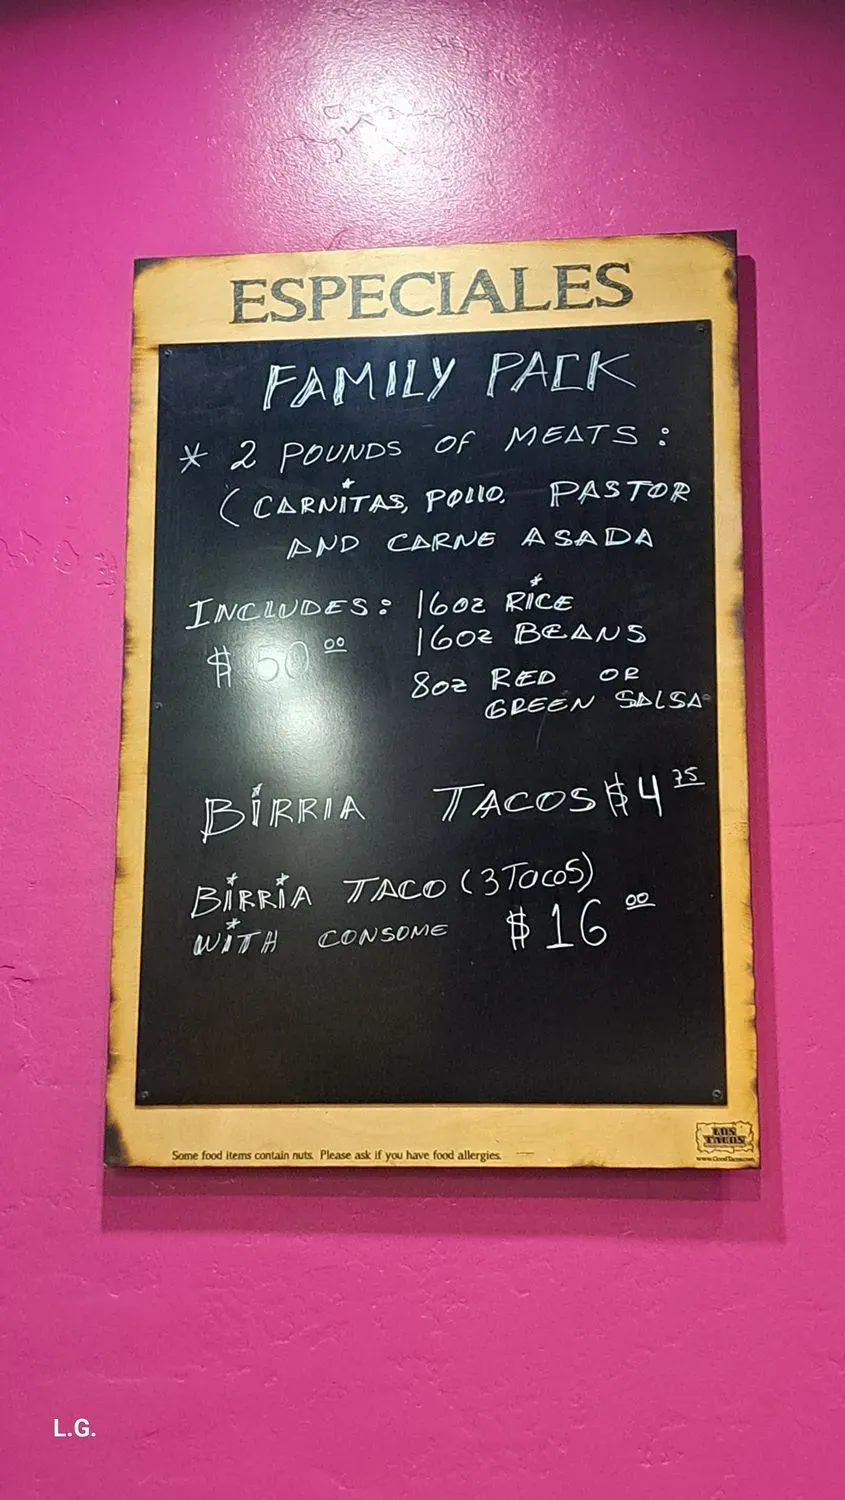 ESPECIALES
FAMILY PACK
* 2 POUNDS OF MEATS:
(CARNITAS, POLLO, PASTOR
AND CARNE ASADA
INCLUDES: 16oz RICE
16oz BEANS
$50.00
8oz RED OR
GREEN SALSA
BIRRIA TACOS $4.75
BIRRIA TACO (3 TOCOS)
WITH CONSOME $16.00
LOS TACOS
Some food items contain nuts. Please ask if you have food allergies.
www.GoodTacos.com
L.G.